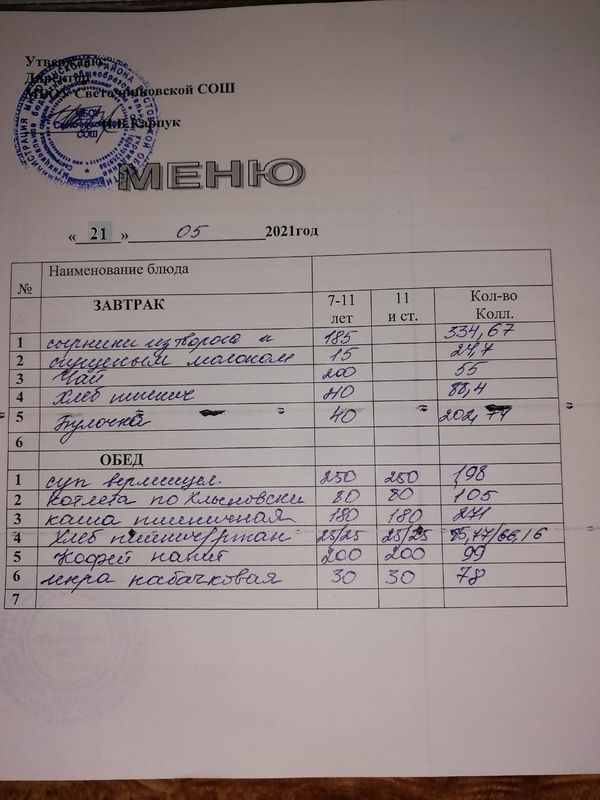 Утверждаю
Директор
МБОУ Светочниковской СОШ
И.В.Карпук
МЕНЮ
« 21 » 05 2021год
№ Наименование блюда
ЗАВТРАК 7-11 лет 11 и ст. Кол-во Колл.
1 сырники из творога и 185 334,67
2 сгущеным молоком 15 24,7
3 Чай 200 55
4 Хлеб пшенич 40 88,4
5 Булочка 40 202,77
6
ОБЕД
1 суп вермишел. 250 250 198
2 котлета по Хлыновски 80 80 105
3 каша пшеничная 180 180 271
4 Хлеб пшенич/ржан 25/25 25/25 /66,16
5 Кофей напит 200 200 99
6 икра кабачковая 30 30 78
7